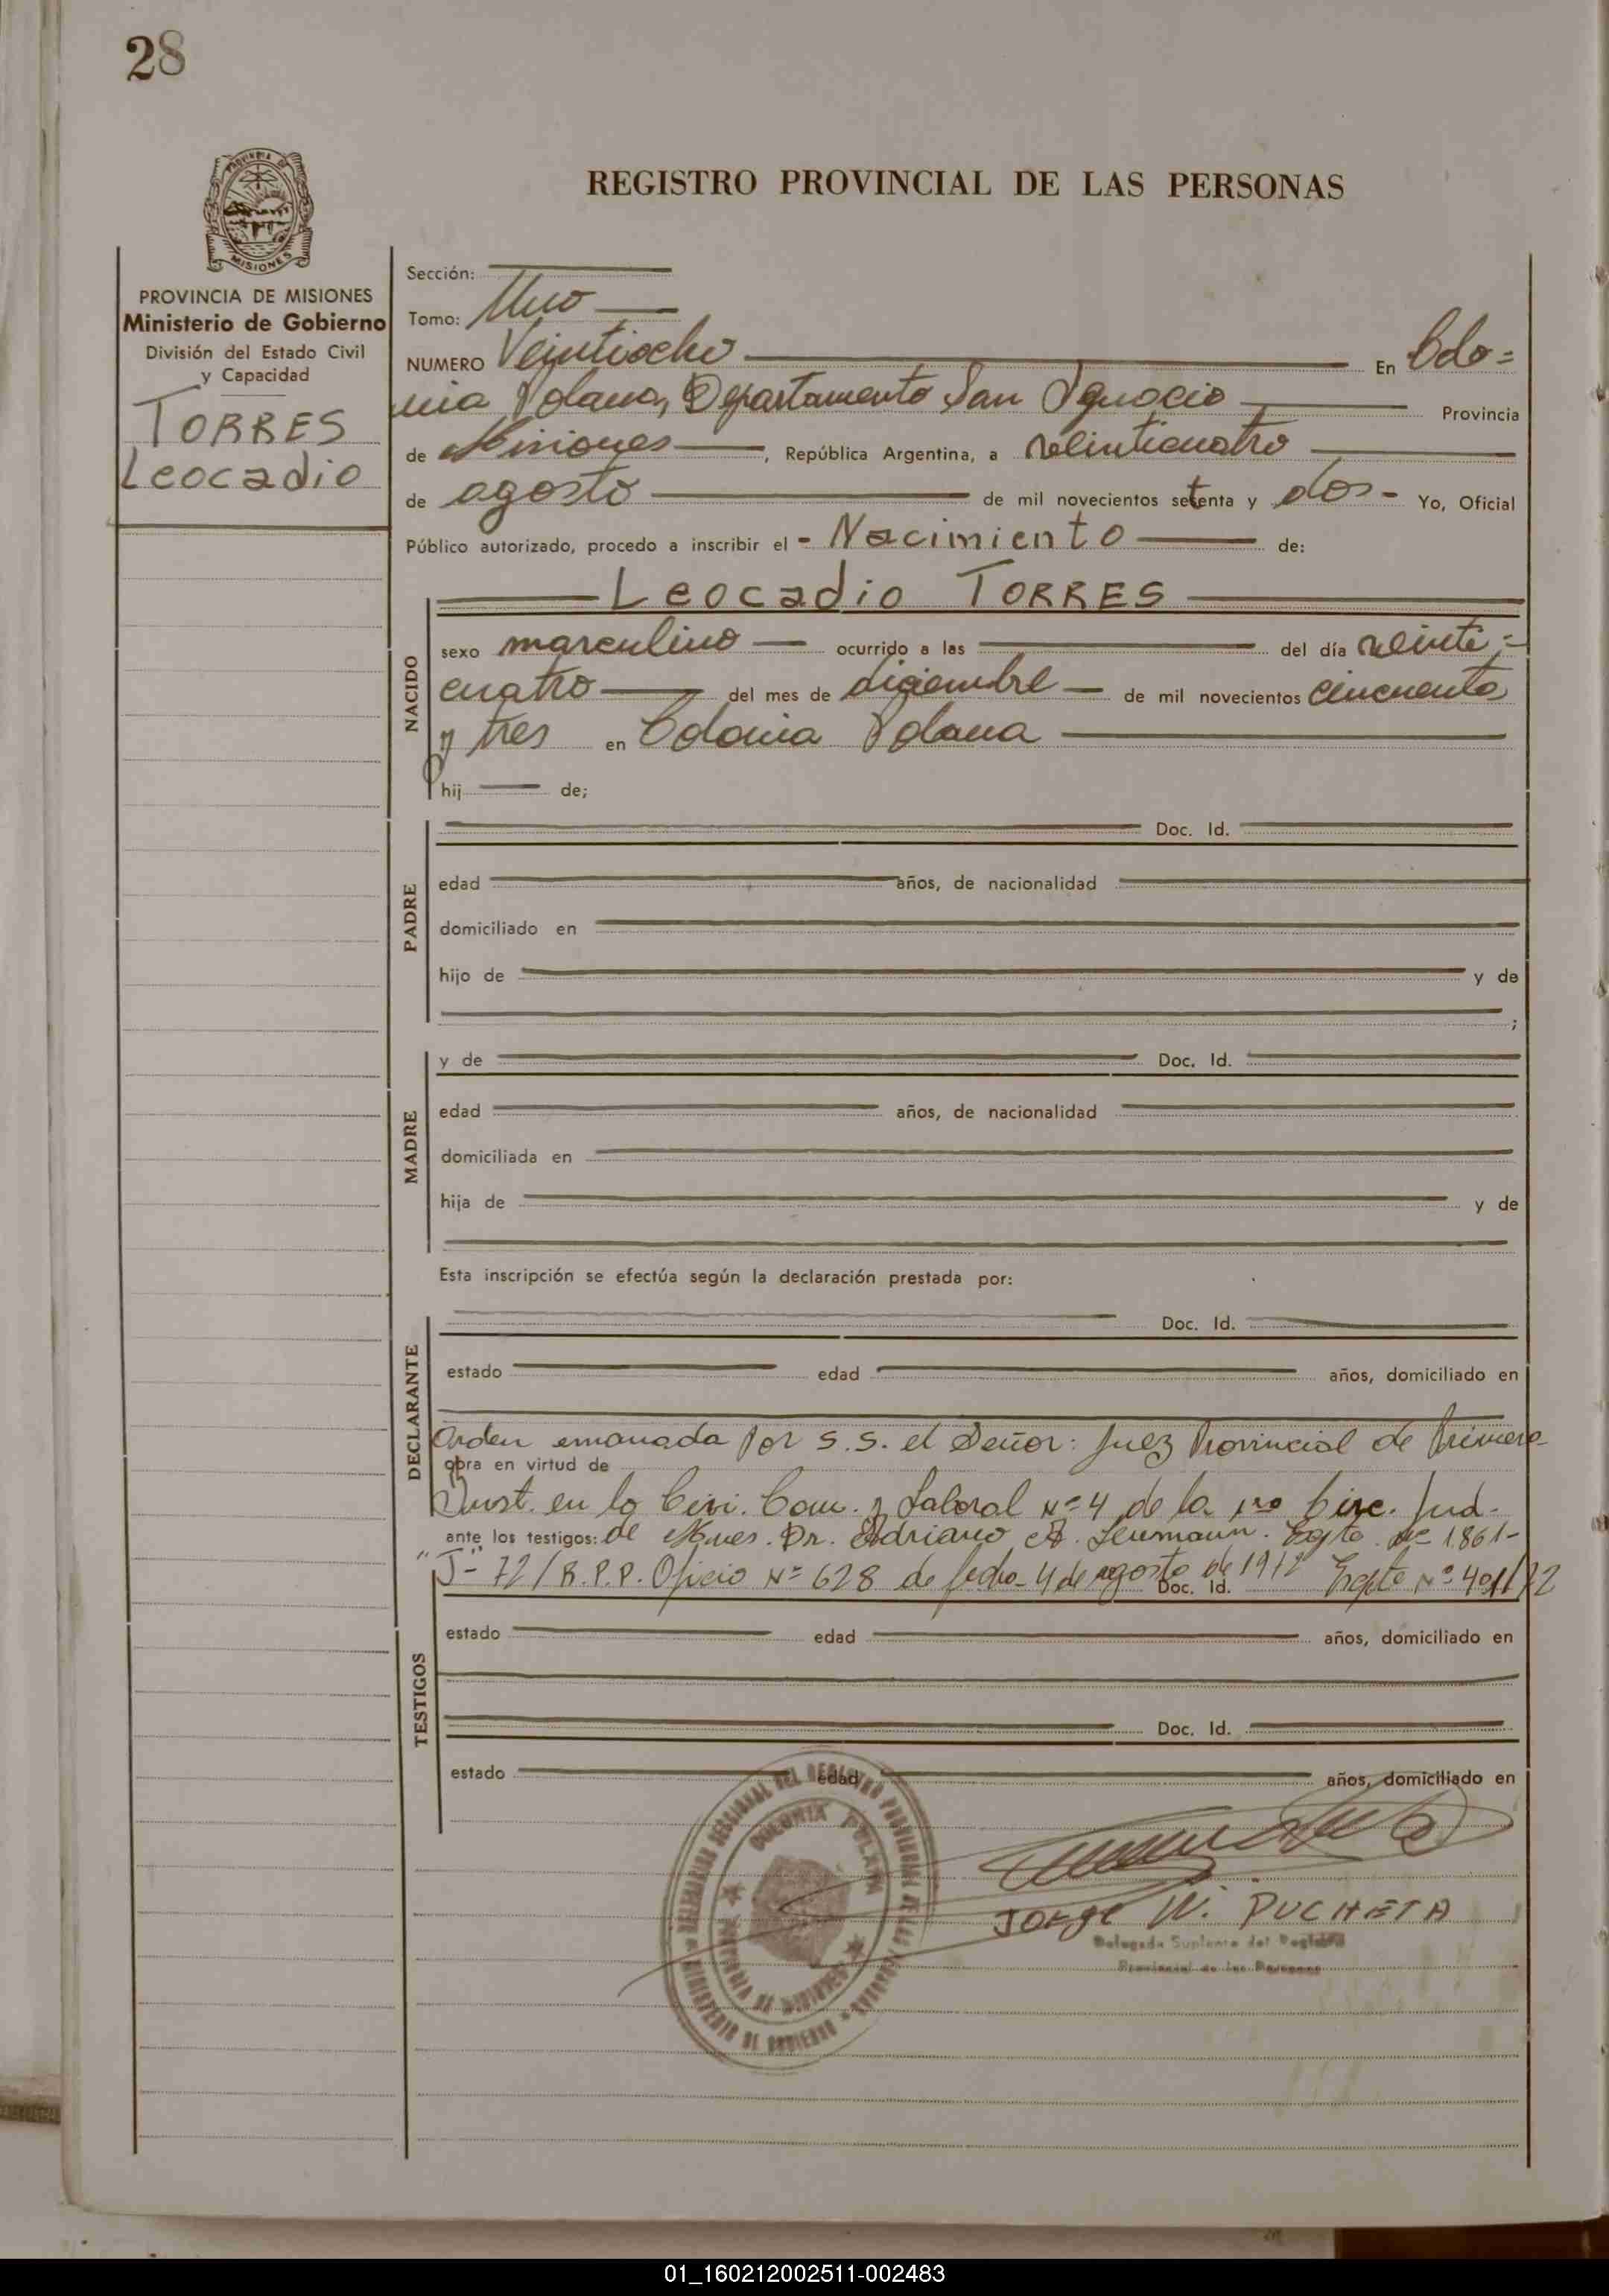 28
PROVINCIA DE
MISIONES
PROVINCIA DE MISIONES
Ministerio de Gobierno
División del Estado Civil
y Capacidad
TORRES
Leocadio
REGISTRO PROVINCIAL DE LAS PERSONAS
Sección:
Tomo: Uno
NUMERO Veintiocho En Colo=
nia Polana, Departamento San Ignacio Provincia
de Misiones, República Argentina, a veinticuatro
de agosto de mil novecientos setenta y dos - Yo, Oficial
Público autorizado, procedo a inscribir el - Nacimiento de:
Leocadio TORRES
NACIDO
sexo masculino ocurrido a las del día veinte =
cuatro del mes de diciembre de mil novecientos cincuenta
y tres en Colonia Polana
hij de;
PADRE
Doc. Id.
edad años, de nacionalidad
domiciliado en
hijo de y de
;
MADRE
y de Doc. Id.
edad años, de nacionalidad
domiciliada en
hija de y de
Esta inscripción se efectúa según la declaración prestada por:
DECLARANTE
Doc. Id.
estado edad años, domiciliado en
Orden emanada por S.S. el Señor: Juez Provincial de Primera
obra en virtud de
Inst. en lo Civi. Com. y Laboral Nº 4 de la 1ra Circ. Jud.
ante los testigos: de Mnes. Dr. Adriano A. Expte. Nº 1861-
"J"- 72/R.P.P. Oficio Nº 628 de fecha 4 de agosto de 1972 Expte Nº 401/72
Doc. Id.
TESTIGOS
estado edad años, domiciliado en
Doc. Id.
estado edad años, domiciliado en
DELEGACION REGIONAL DEL REGISTRO PROVINCIAL DE LAS PERSONAS
COLONIA POLANA
PROVINCIA DE MISIONES
MINISTERIO DE GOBIERNO
Jorge W. PUCHETA
Delegado Suplente del Registro
Provincial de las Personas
01_160212002511-002483